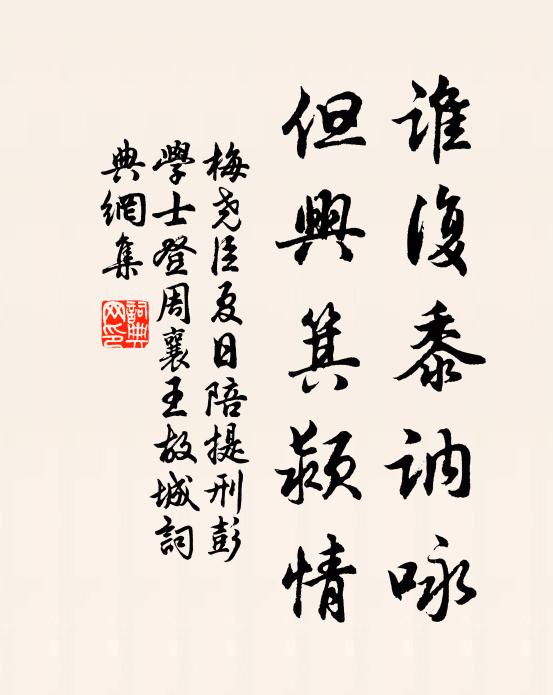 誰復黍訥咏
但興箕颍情
梅尧臣夏日陪提刑彭
學士登周襄王故城詞
典網集
詞典
网印